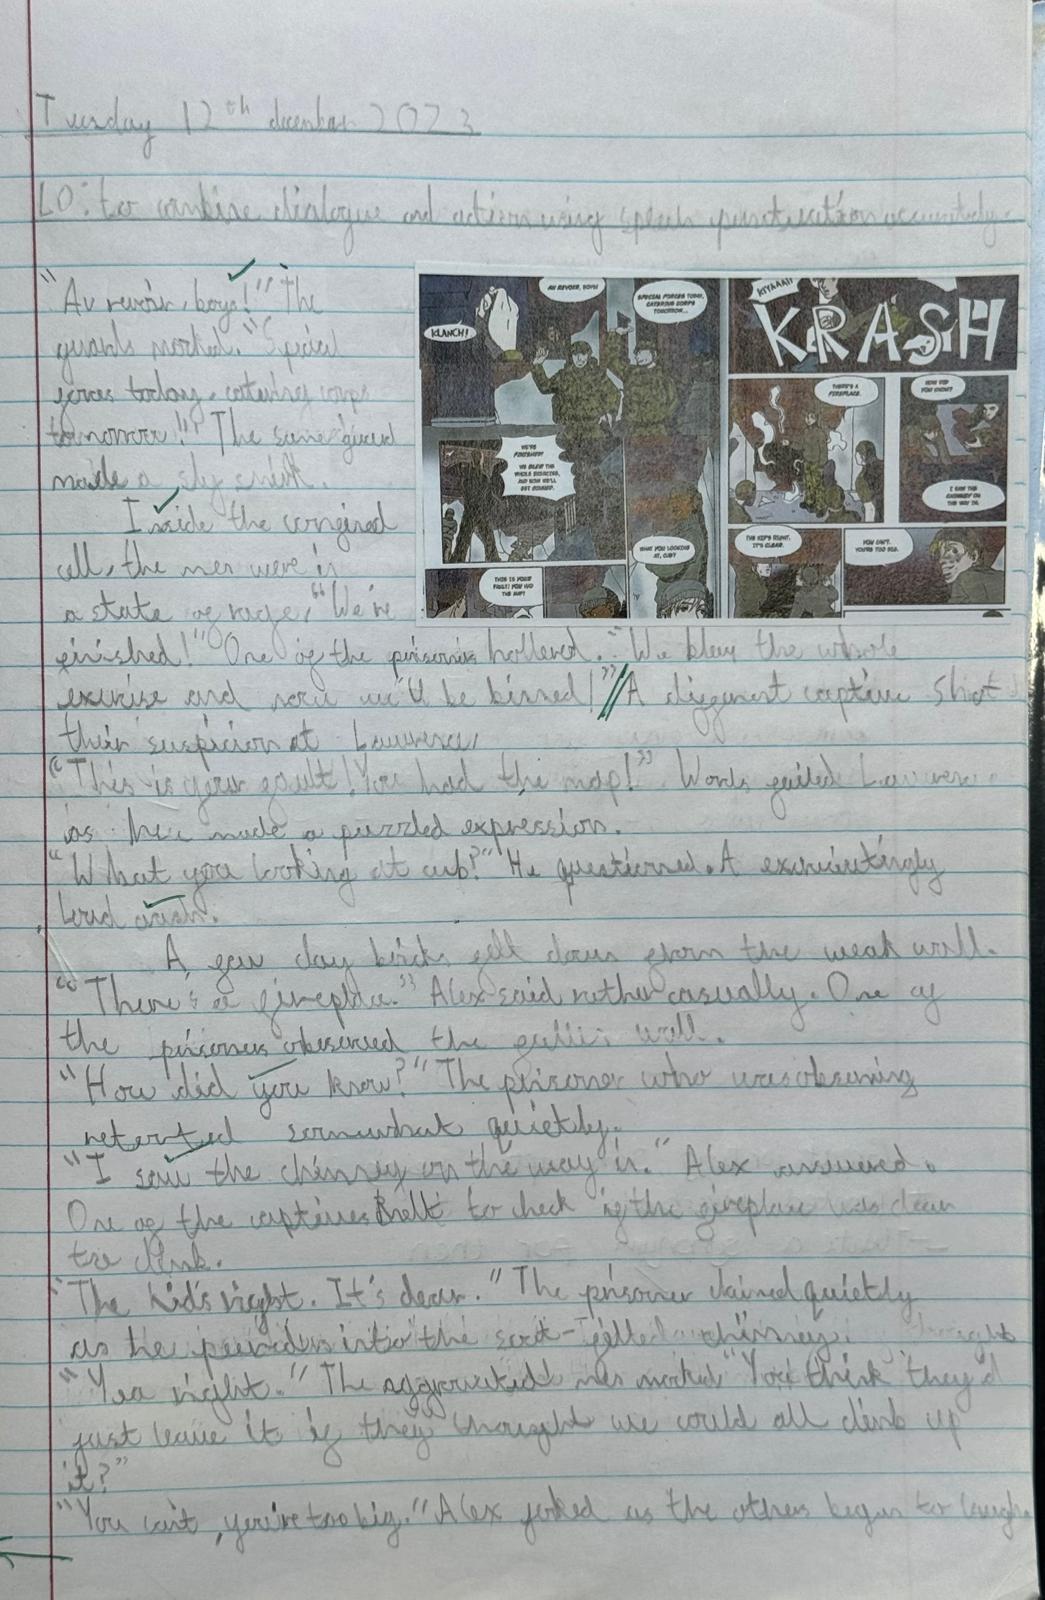 Tuesday 12th december 2023
LO: to combine dialogue and action using speech punctuation accurately.
"Au revoir, boys!" The
guards mocked. "Special
forces today, catering corps
tomorrow!" The same guard
made a sly smirk.
Inside the congined
cell, the men were in
a state of rage. "We're
finished!" One of the prisoners hollered. "We blew the whole
exercise and now we'll be binned!" // A different captive shot
their suspicion at Lawrence,
"This is your fault! You had the map!" Words failed Lawrence
as he made a puzzled expression.
"What you looking at cub?" He questioned. A excruciatingly
loud crash.
A few clay bricks fell down from the weak wall.
"There's a fireplace." Alex said rather casually. One of
the prisoners observed the wall.
"How did you know?" The prisoner who was observing
retorted somewhat quietly.
"I saw the chimney on the way in." Alex answered.
One of the captives knelt to check if the fireplace was clear
to climb.
"The kid's right. It's clear." The prisoner claimed quietly
as he peered into the soot-filled chimney.
"Yea right." The aggravated men mocked "You think they'd
just leave it if they thought we could all climb up
it?"
"You can't, you're too big." Alex joked as the others began to laugh.
KLANCH!
AU REVOIR, BOYS!
SPECIAL FORCES TODAY,
CATERING CORPS
TOMORROW...
WE'RE
FINISHED!
WE BLEW THE
WHOLE EXERCISE,
AND NOW WE'LL
GET BINNED.
WHAT YOU LOOKING
AT, CUB?
THIS IS YOUR
FAULT! YOU HAD
THE MAP!
KIYAAA!!
KRASH
THERE'S A
FIREPLACE.
HOW DID
YOU KNOW?
I SAW THE
CHIMNEY ON
THE WAY IN.
THE KID'S RIGHT.
IT'S CLEAR.
YOU CAN'T.
YOU'RE TOO BIG.